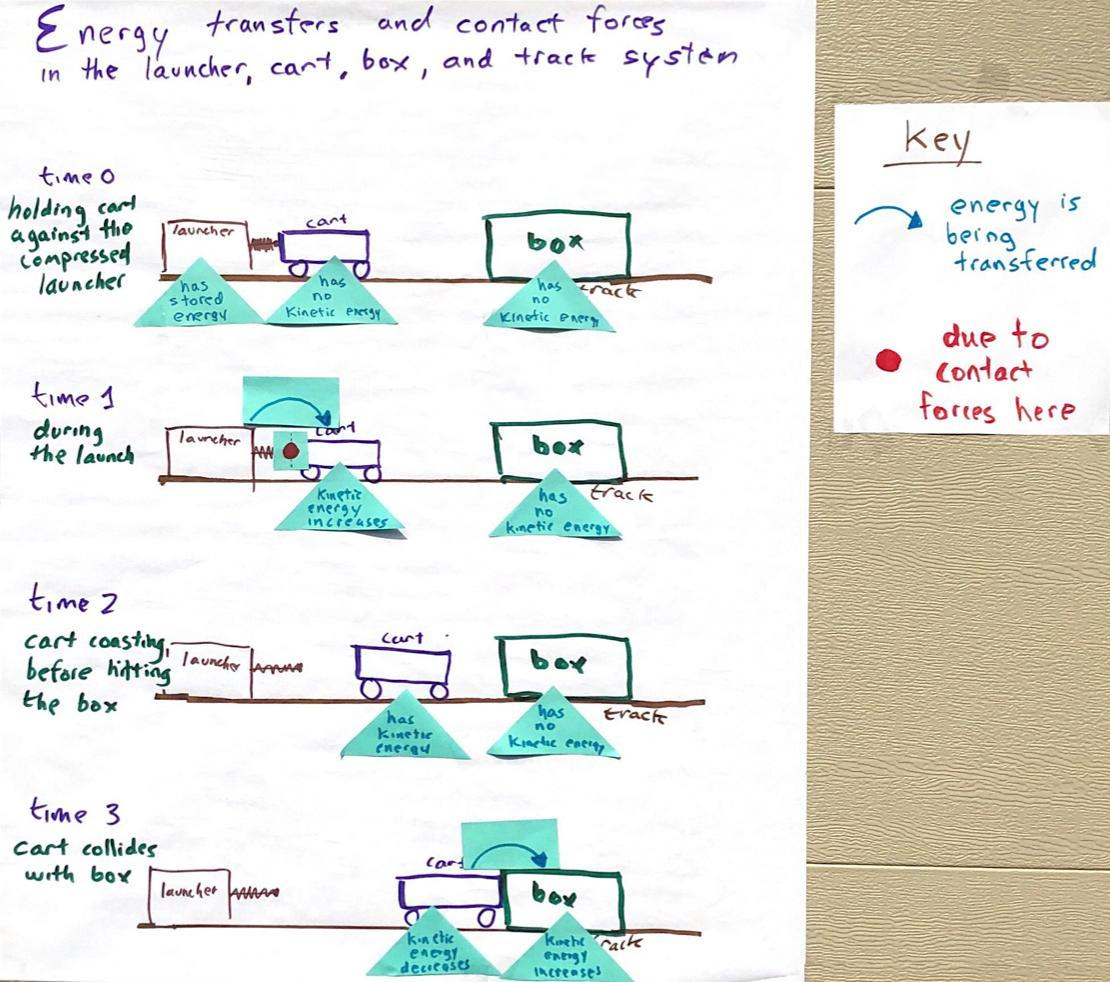 Energy transfers and contact forces
in the launcher, cart, box, and track system
time 0
holding cart
against the
compressed
launcher
launcher
cart
box
track
has
stored
energy
has
no
Kinetic energy
has
no
Kinetic energy
time 1
during
the launch
launcher
cart
box
track
Kinetic
energy
increases
has
no
kinetic energy
time 2
cart coasting,
before hitting
the box
launcher
cart
box
track
has
Kinetic
energy
has
no
Kinetic energy
time 3
cart collides
with box
launcher
cart
box
track
Kinetic
energy
decreases
Kinetic
energy
increases
Key
energy is
being
transferred
due to
contact
forces here